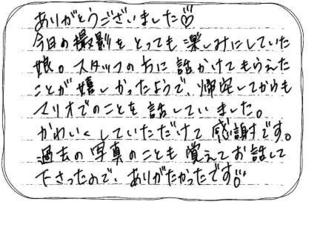 ありがとうございました♡
今日の撮影をとっても楽しみにしていた
娘。スタッフの方に話かけてもらえた
ことが嬉しかったようで、帰宅してからも
マリオでのことを話していました。
かわいくしていただけて感謝です。
過去の写真のことも覚えてお話して
下さったので、ありがたかったです♡